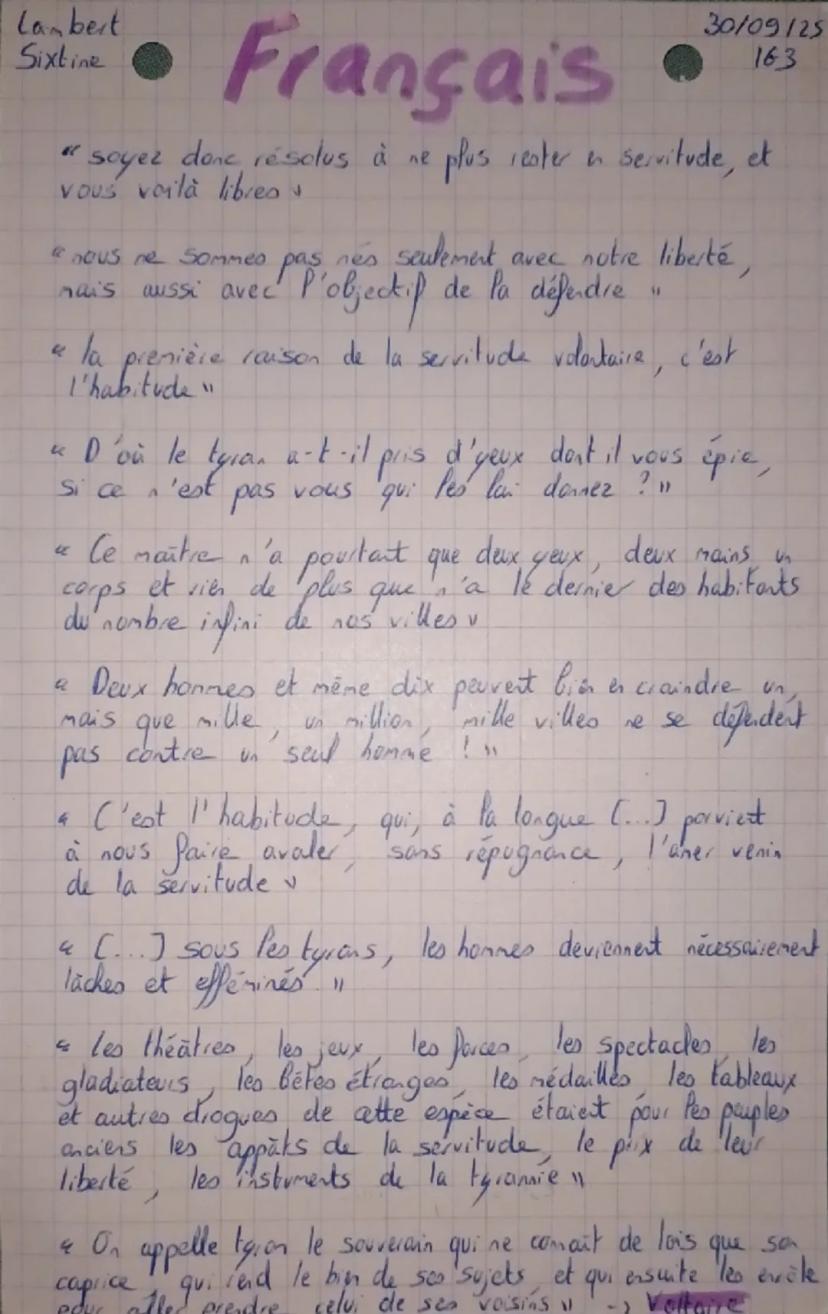 Lambert
Sixtine
Français
30/09/25
1G3
" soyez donc résolus à ne plus rester en servitude, et
vous voilà libres "
" nous ne sommes pas nés seulement avec notre liberté,
mais aussi avec l'objectif de la défendre "
" la première raison de la servitude volontaire, c'est
l'habitude "
" D'où le tyran a-t-il pris d'yeux dont il vous épie,
si ce n'est pas vous qui les lui donnez ? "
" Ce maître n'a pourtant que deux yeux, deux mains, un
corps et rien de plus que n'a le dernier des habitants
du nombre infini de nos villes "
" Deux hommes et même dix peuvent bien en craindre un,
mais que mille, un million, mille villes ne se défendent
pas contre un seul homme ! "
" C'est l'habitude, qui, à la longue [...] parvient
à nous faire avaler, sans répugnance, l'amer venin
de la servitude "
" [...] sous les tyrans, les hommes deviennent nécessairement
lâches et efféminés. "
" les théâtres, les jeux, les farces, les spectacles, les
gladiateurs, les bêtes étranges, les médailles, les tableaux
et autres drogues de cette espèce étaient pour les peuples
anciens les appâts de la servitude, le prix de leur
liberté, les instuments de la tyrannie "
" On appelle tyran le souverain qui ne connaît de lois que son
caprice, qui rend le bien de ses sujets, et qui ensuite les enrôle
pour aller prendre celui de ses voisins " -> Voltaire